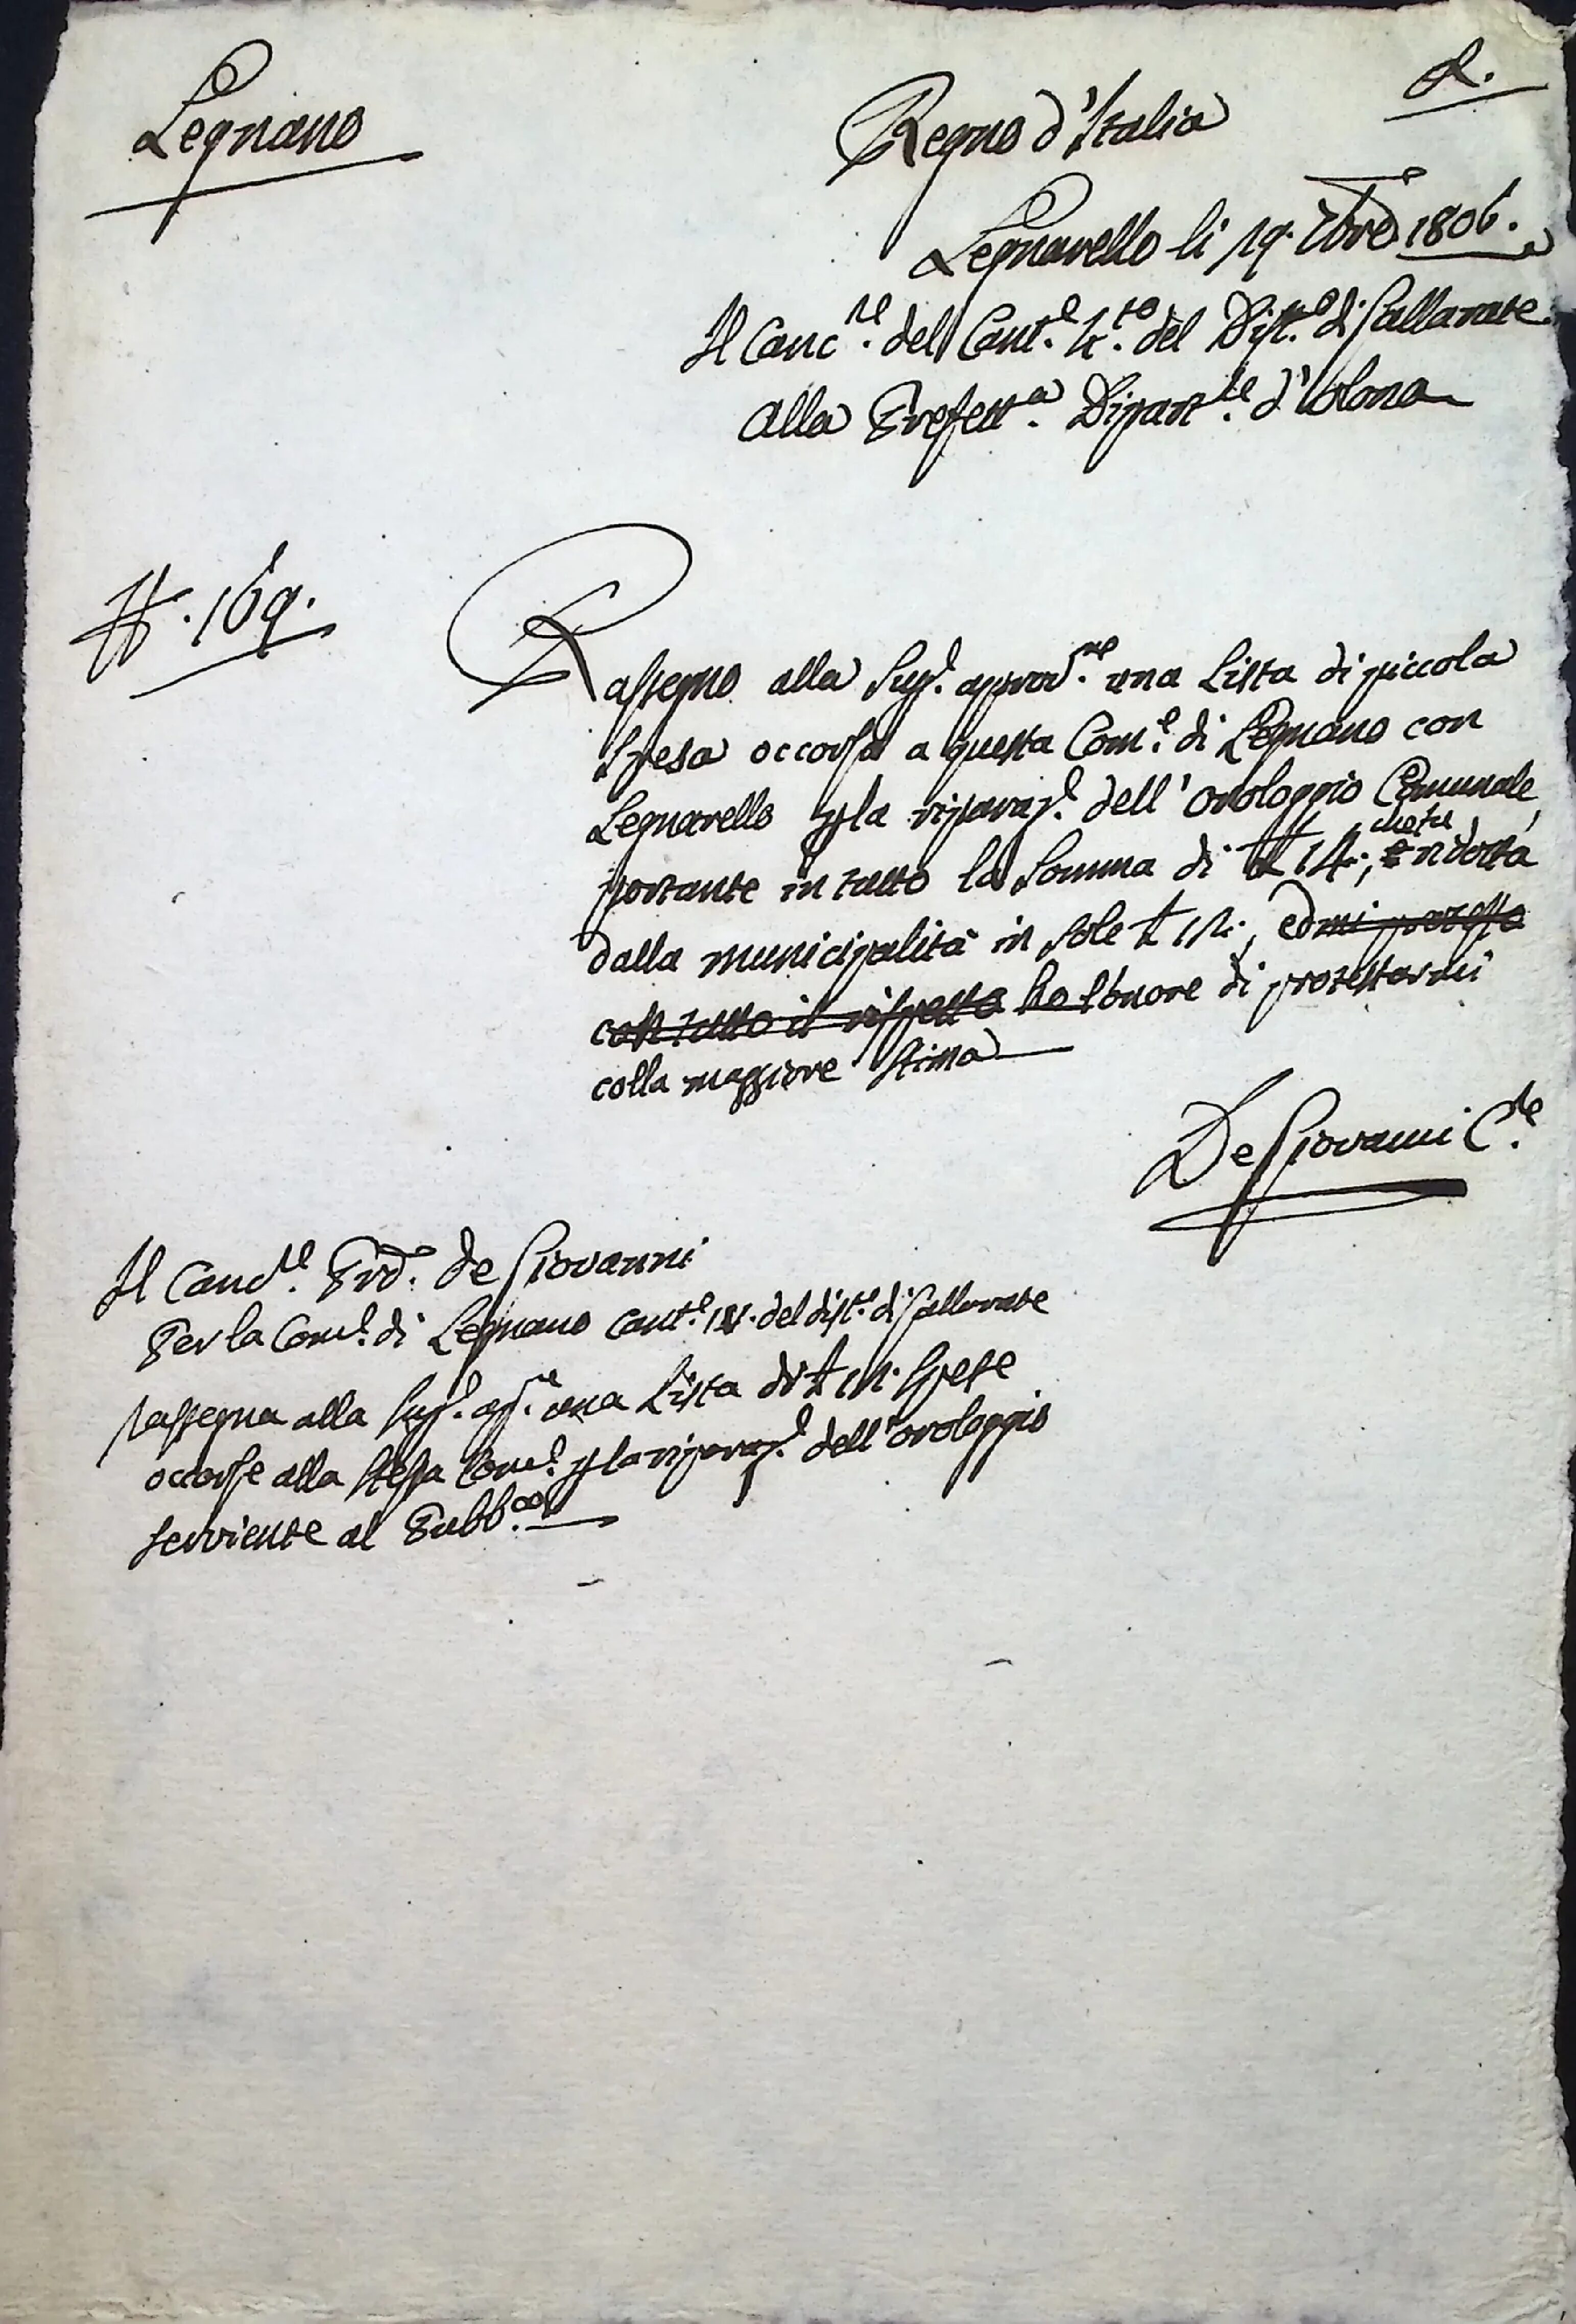 Legnano
Regno d'Italia
Legnarello li 19. 7bre 1806.
Il Canc.re del Cant.e 4.to del Dist.o di Gallarate
Alla Prefett.a Dipart.le d'Olona
N. 169.
Rassegno alla Sup.e approv.ne una Lista di piccola
spesa occorsa a questa Com.e di Legnano con
Legnarello p la riparaz.e dell'orologgio Comunale,
portante in tutto la somma di £ 14., che fu ridotta
dalla municipalità in sole £ 12., ed mi protesto
con tutto il rispetto ho l'onore di protestarmi
colla maggiore stima
De Giovanni C.re
Il Canc.re Prov. de Giovanni
Per la Com.e di Legnano Cant.e IV. del dist.o di Gallarate
rassegna alla Sup.e ap.ne una Lista di £ 12. spese
occorse alla stessa Com.e p la riparaz.e dell'orologgio
serviente al Pubb.co